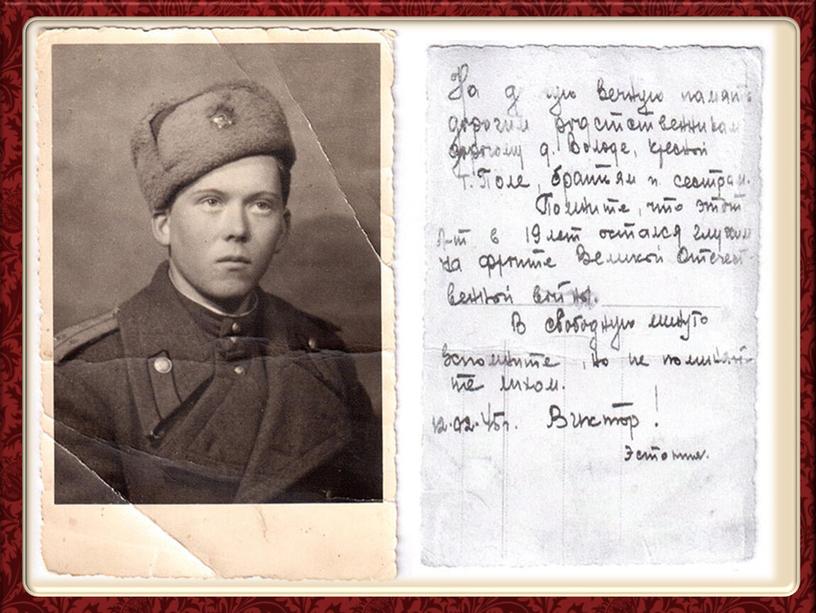 На д гую вечную память
дорогим родственникам
дорогому д. Володе, крёсной
т. Поле, братьям и сестрам.
Помните, что этот
л-т в 19 лет остался глухим
на фронте Великой Отечест-
венной войны.
В свободную минуту
вспомните, но не поминай-
те лихом.
12.02.45г. Виктор!
Эстония.